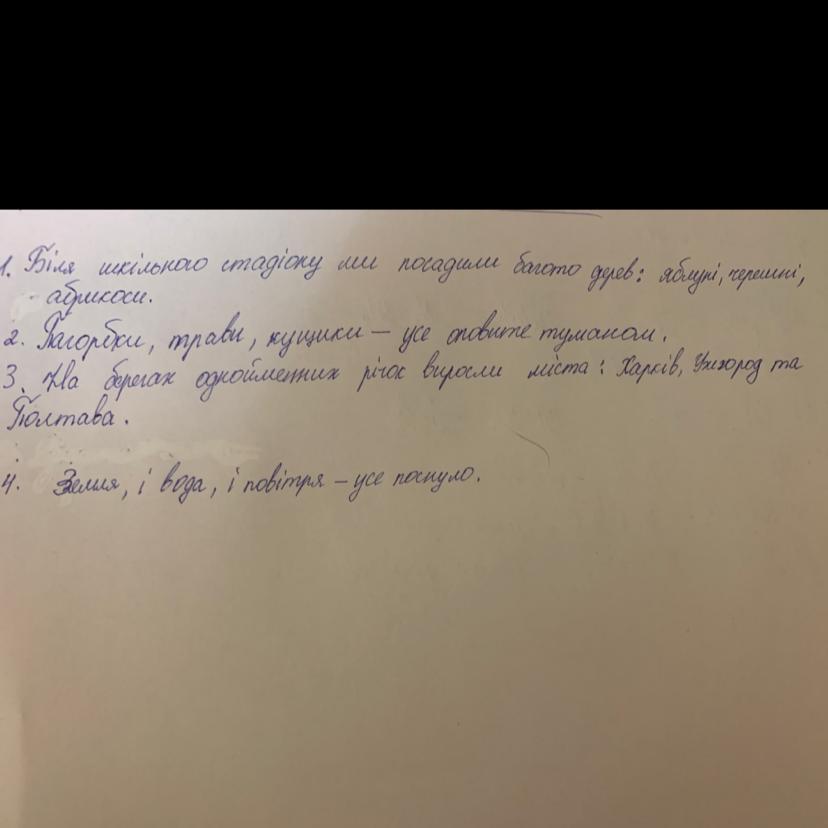 1. Біля шкільного стадіону ми посадили багато дерев: яблуні, черешні,
абрикоси.
2. Пагорбки, трави, кущики – усе оповите туманом.
3. На берегах однойменних річок виросли міста: Харків, Ужгород та
Полтава.
4. Земля, і вода, і повітря – усе поснуло.